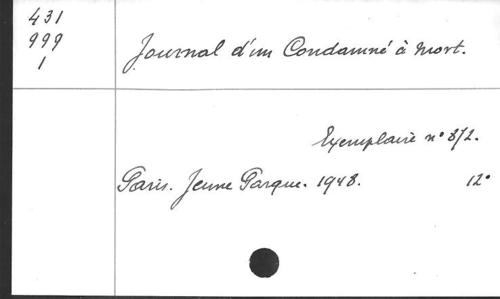 431
999
1
Journal d'un Condamné à Mort.
Exemplaire n° 872.
Paris. Jeune Parque. 1948. 12°